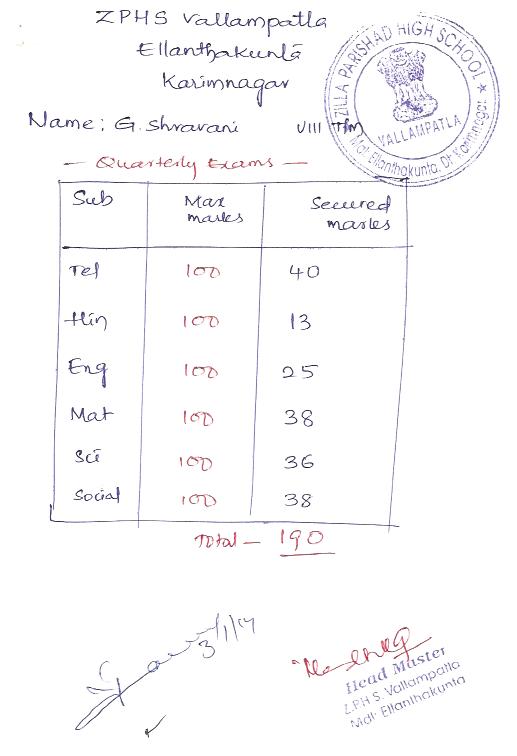 ZPHS Vallampatla
Ellanthakunta
Karimnagar
ZILLA PARISHAD HIGH SCHOOL
VALLAMPATLA
Mdl: Ellanthakunta, Dt. Karimnagar.
Name: G. Shravani VIII
— Quarterly Exams —
Sub Max marks Secured marks
Tel 100 40
Hin 100 13
Eng 100 25
Mat 100 38
Sci 100 36
Social 100 38
Total — 190
3/1/17
Head Master
Z.P.H S. Vallampatla
Mdl: Ellanthakunta